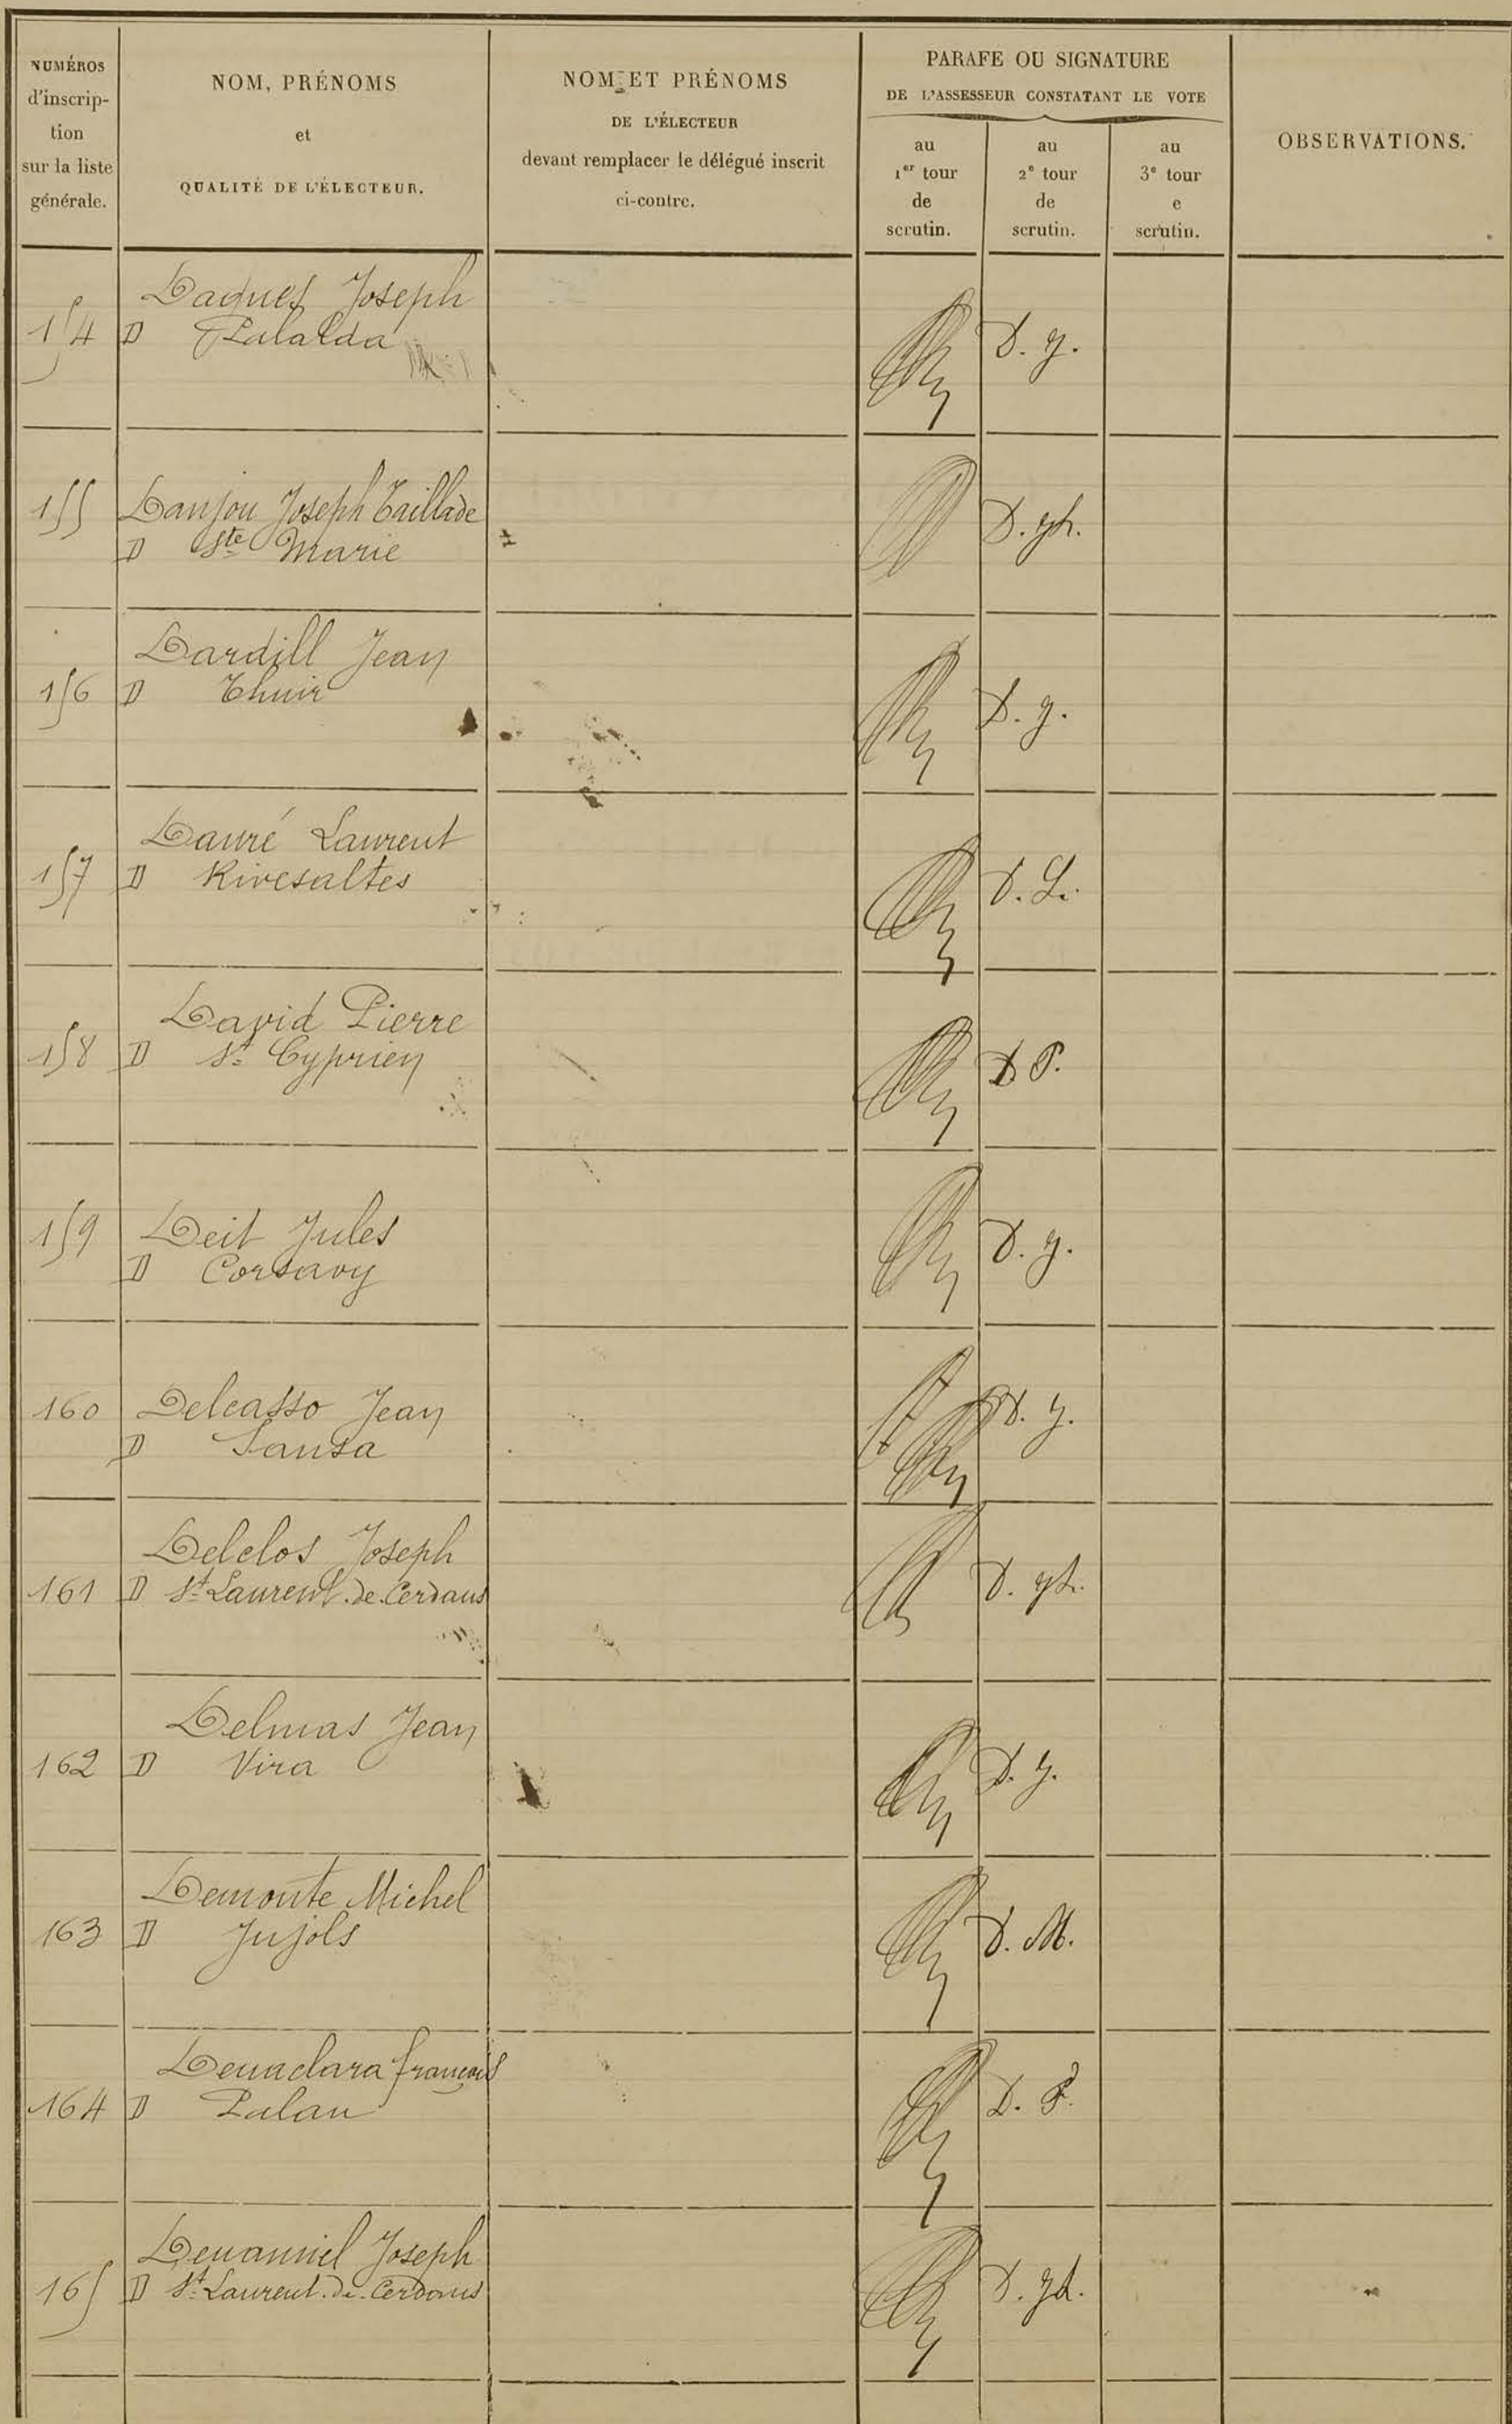 NUMÉROS
d'inscrip-
tion
sur la liste
générale.
NOM, PRÉNOMS
et
QUALITÉ DE L'ÉLECTEUR.
NOM ET PRÉNOMS
DE L'ÉLECTEUR
devant remplacer le délégué inscrit
ci-contre.
PARAFE OU SIGNATURE
DE L'ASSESSEUR CONSTATANT LE VOTE
au
1er tour
de
scrutin.
au
2e tour
de
scrutin.
au
3e tour
e
scrutin.
OBSERVATIONS.
Daques Joseph
154 D Palalda D. J.
155 Danjou Joseph Taillade D. Jh.
D Ste Marie
Dardill Jean
156 D Thuir D. J.
Dauré Laurent
157 D Rivesaltes D. L.
David Pierre
158 D St Cyprien D. P.
159 Deit Jules D. J.
D Corsavy
160 Delcasso Jean D. J.
D Sansa
Delclos Joseph
161 D St Laurent de Cerdans D. Jh.
Delmas Jean
162 D Vira D. J.
Demonte Michel
163 D Jujols D. M.
Denaclara françois
164 D Palau D. F.
Denamiel Joseph
165 D St Laurent de Cerdans D. Jh.